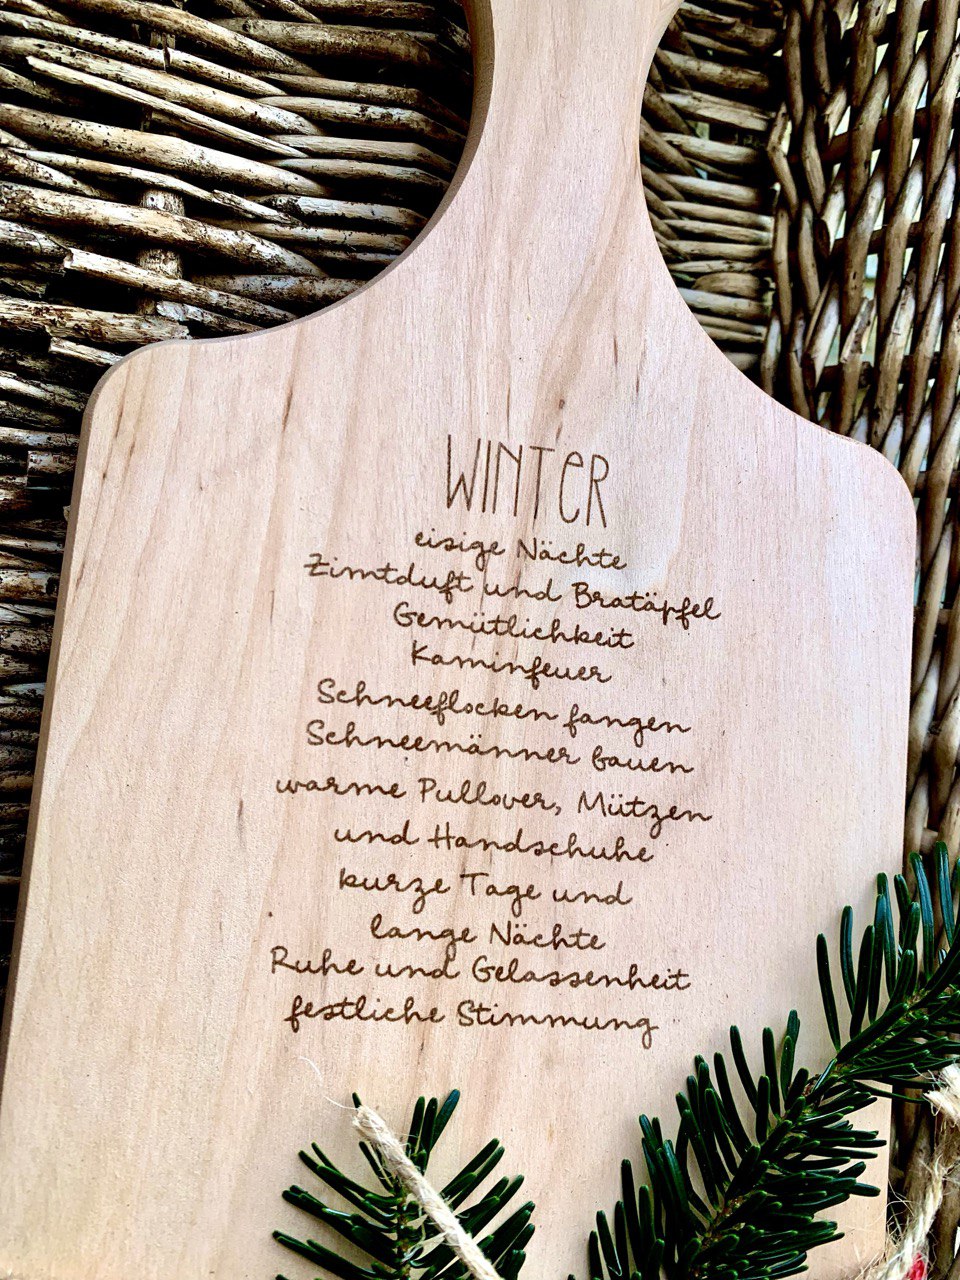 WINTER
eisige Nächte
Zimtduft und Bratäpfel
Gemütlichkeit
Kaminfeuer
Schneeflocken fangen
Schneemänner bauen
warme Pullover, Mützen
und Handschuhe
kurze Tage und
lange Nächte
Ruhe und Gelassenheit
festliche Stimmung